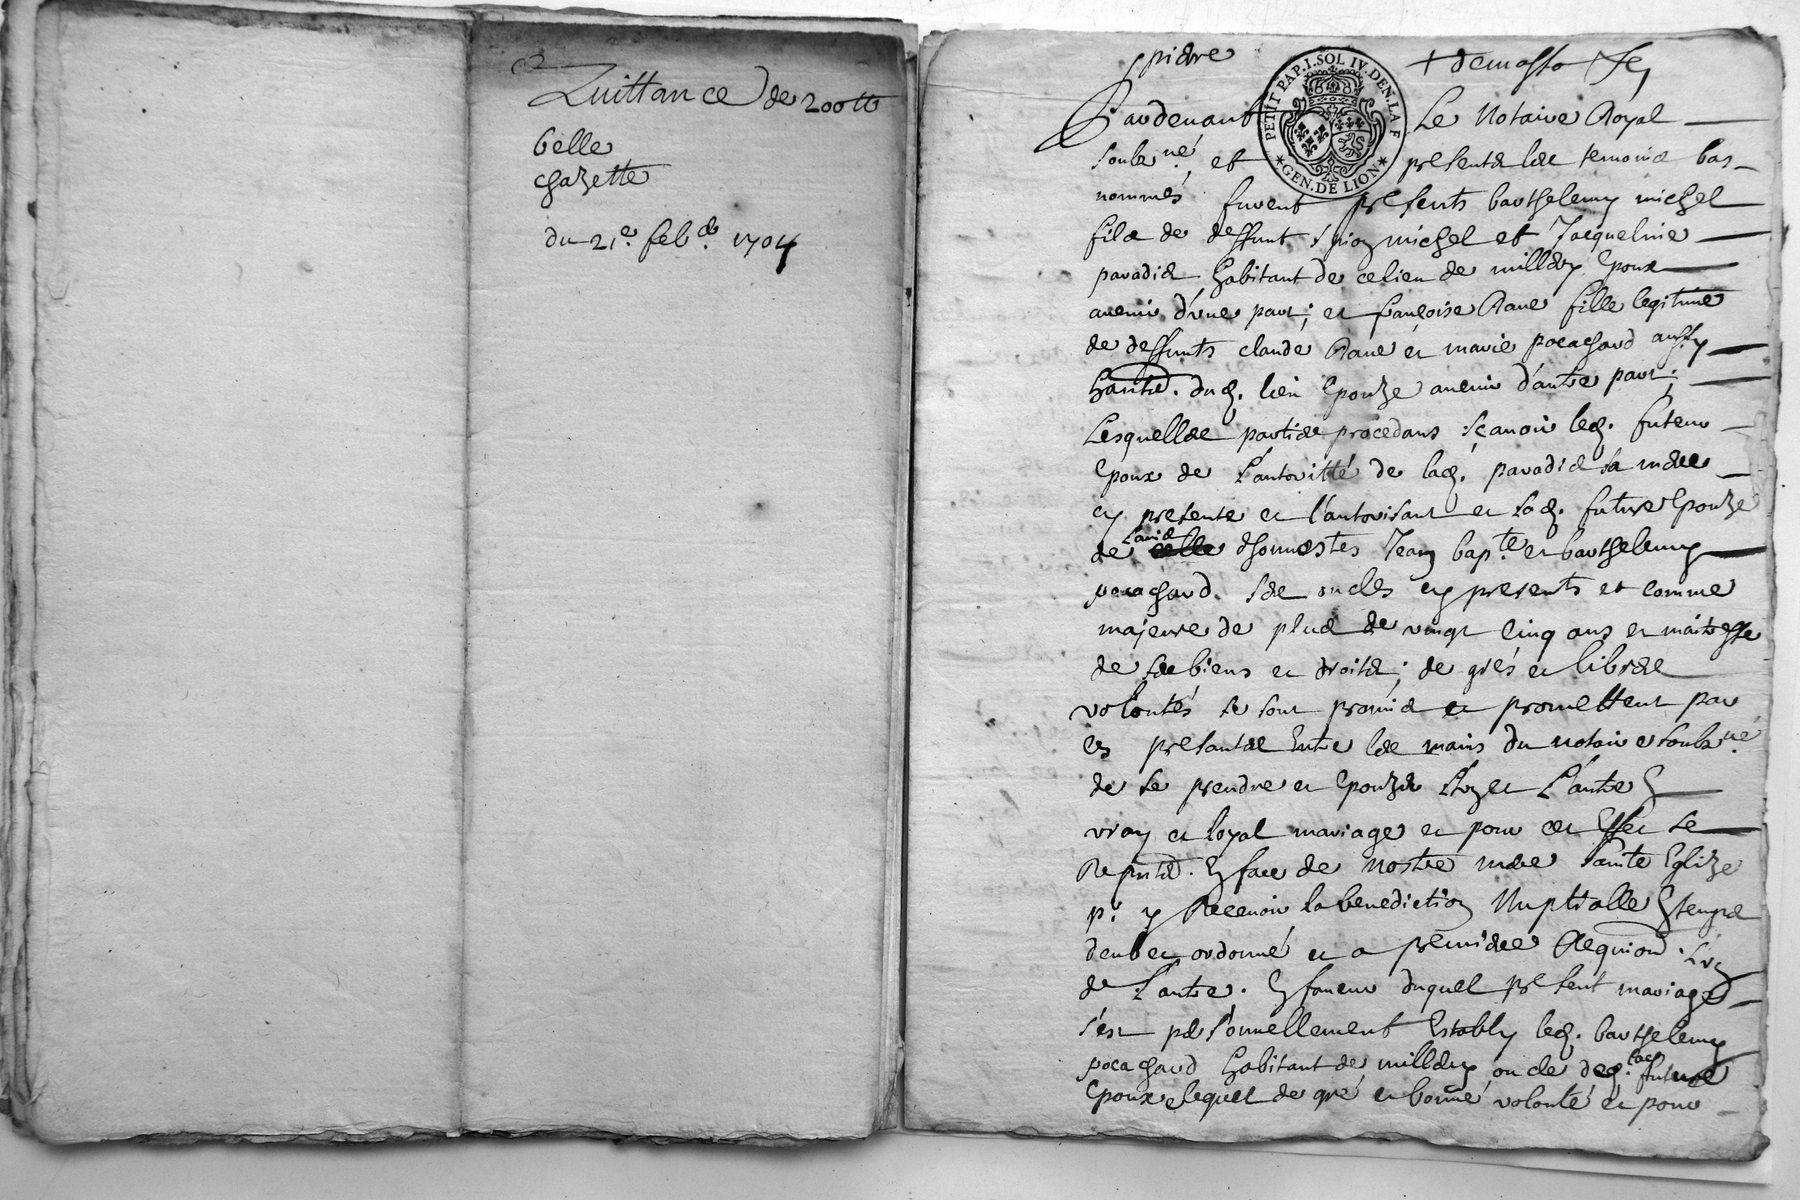 Quittance de 200 tt
belle
chazette
du 21e. feb. 1704
PETIT PAP. I. SOL IV. DEN. LA F
GEN. DE LION
Pardevant Le Notaire Royal
soubz.né, et presents les temoins bas
nommés furent presents barthelemy michel
fils de deffunt michel et Jacqueline
paradis habitant de ce lieu de millery Epoux
avenir d'une part; et françoise Rave fille legitime
de deffunts claude Rave et marie pocachard aussy
habit. dud. lieu Epouze avenir d'autre part;
Lesquelles parties procedans sçavoir led. futeur
Epoux de l'autoritté de lad. paradis sa mere
cy presente et l'autorisant et lad. future Epouze
de l'avis d'honnestes Jean bap.te et barthelemy
pocachard ses oncles cy presents et comme
majeure de plus de vingt cinq ans et maitresse
de ses biens et droits; de grés et libres
volontés se sont promis et promettent par
ces presantes Entre les mains du notaire soubz.né
de se prendre et Epouzer L'un et L'autre En
vray et loyal mariage et pour cet Effet se
En face de nostre mere sainte Eglize
pr. y Recevoir la benediction Nuptialle En temps
deub et ordonné et a premiere Requion. L'un
de L'autre. En faveur duquel present mariage
s'est personnellement Estably led. barthelemy
pocachard habitant de millery oncle de lad. future
Epouze lequel de gré et bonne volonté et pour